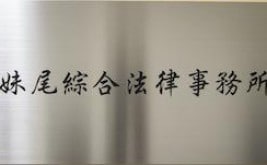 妹尾綜合法律事務所